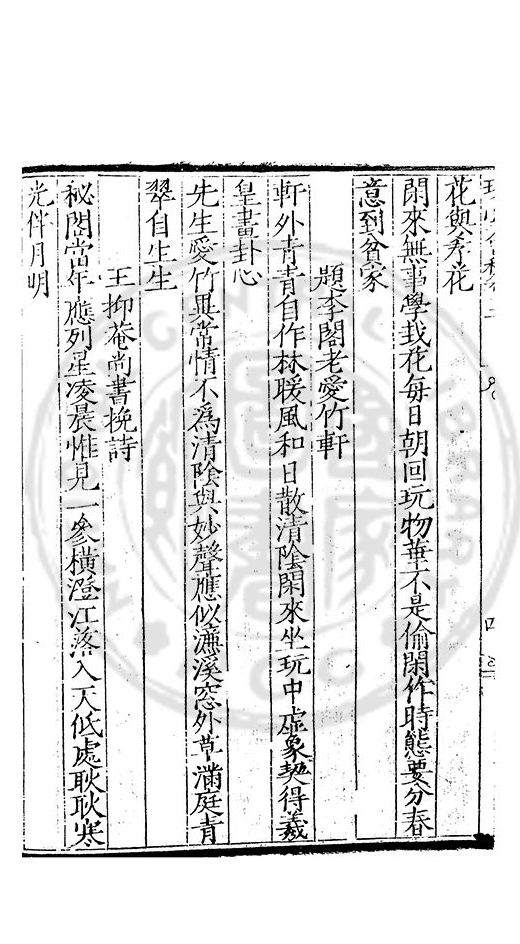 花與秀花
閑來無事學栽花每日朝回玩物華不是偷閑作時態要分春
意到貧家
題李閣老愛竹軒
軒外青青自作林暖風和日散清陰閑來坐玩中虛象契得羲
皇畫卦心
先生愛竹異常情不為清陰與妙聲應似濂溪窓外草滿庭青
翠自生生
王抑菴尚書挽詩
秘閣當年應列星凌晨惟見一參橫澄江落入天低處耿耿寒
光伴月明